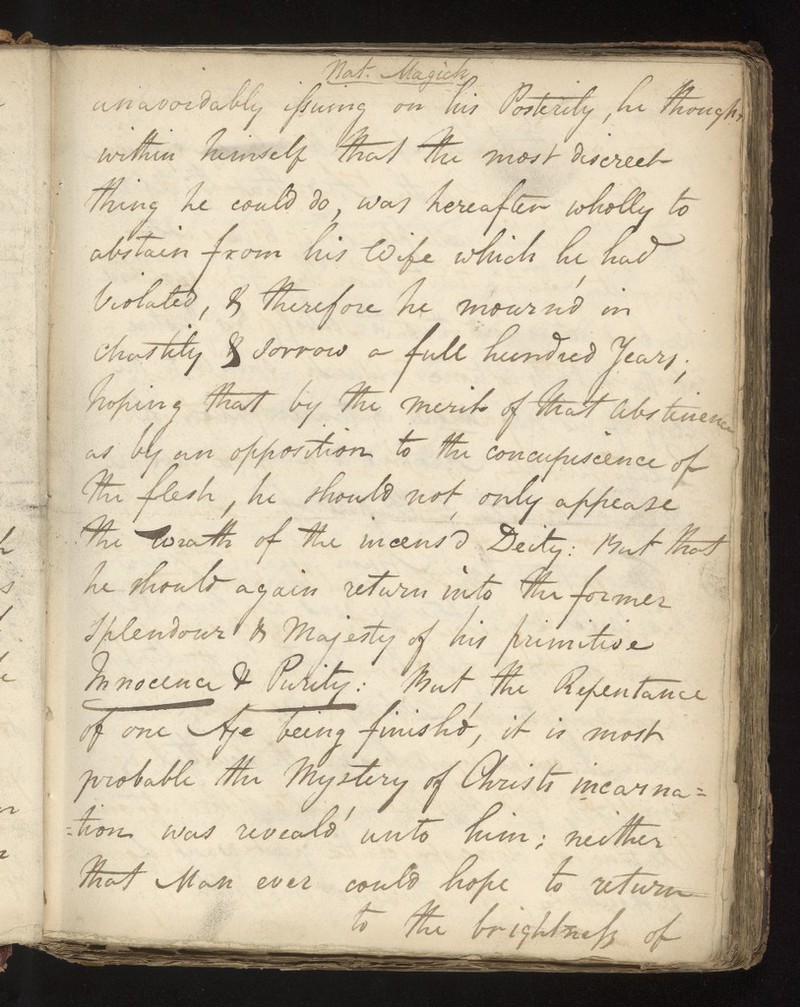 Nat. Magick
unavoidably issuing on his Posterity, he though
within himself that the most discreet
thing he could do, was hereafter wholly to
abstain from his Wife which he had
Violated, & therefore he mourn'd in
chastity & sorrow a full hundred Years;
hoping that by the merit of that Abstinence
as by an opposition to the concupiscence of
the flesh, he should not, only appease
the wrath of the incens'd Deity: But that
he should again return into the former
Splendour & Majesty of his primitive
Innocence & Purity: But the Repentance
of one Age being finish'd, it is most
probable the Mystery of Christs incarna=
=tion was reveal'd unto him; neither
that Man ever could hope to return
to the brightness of